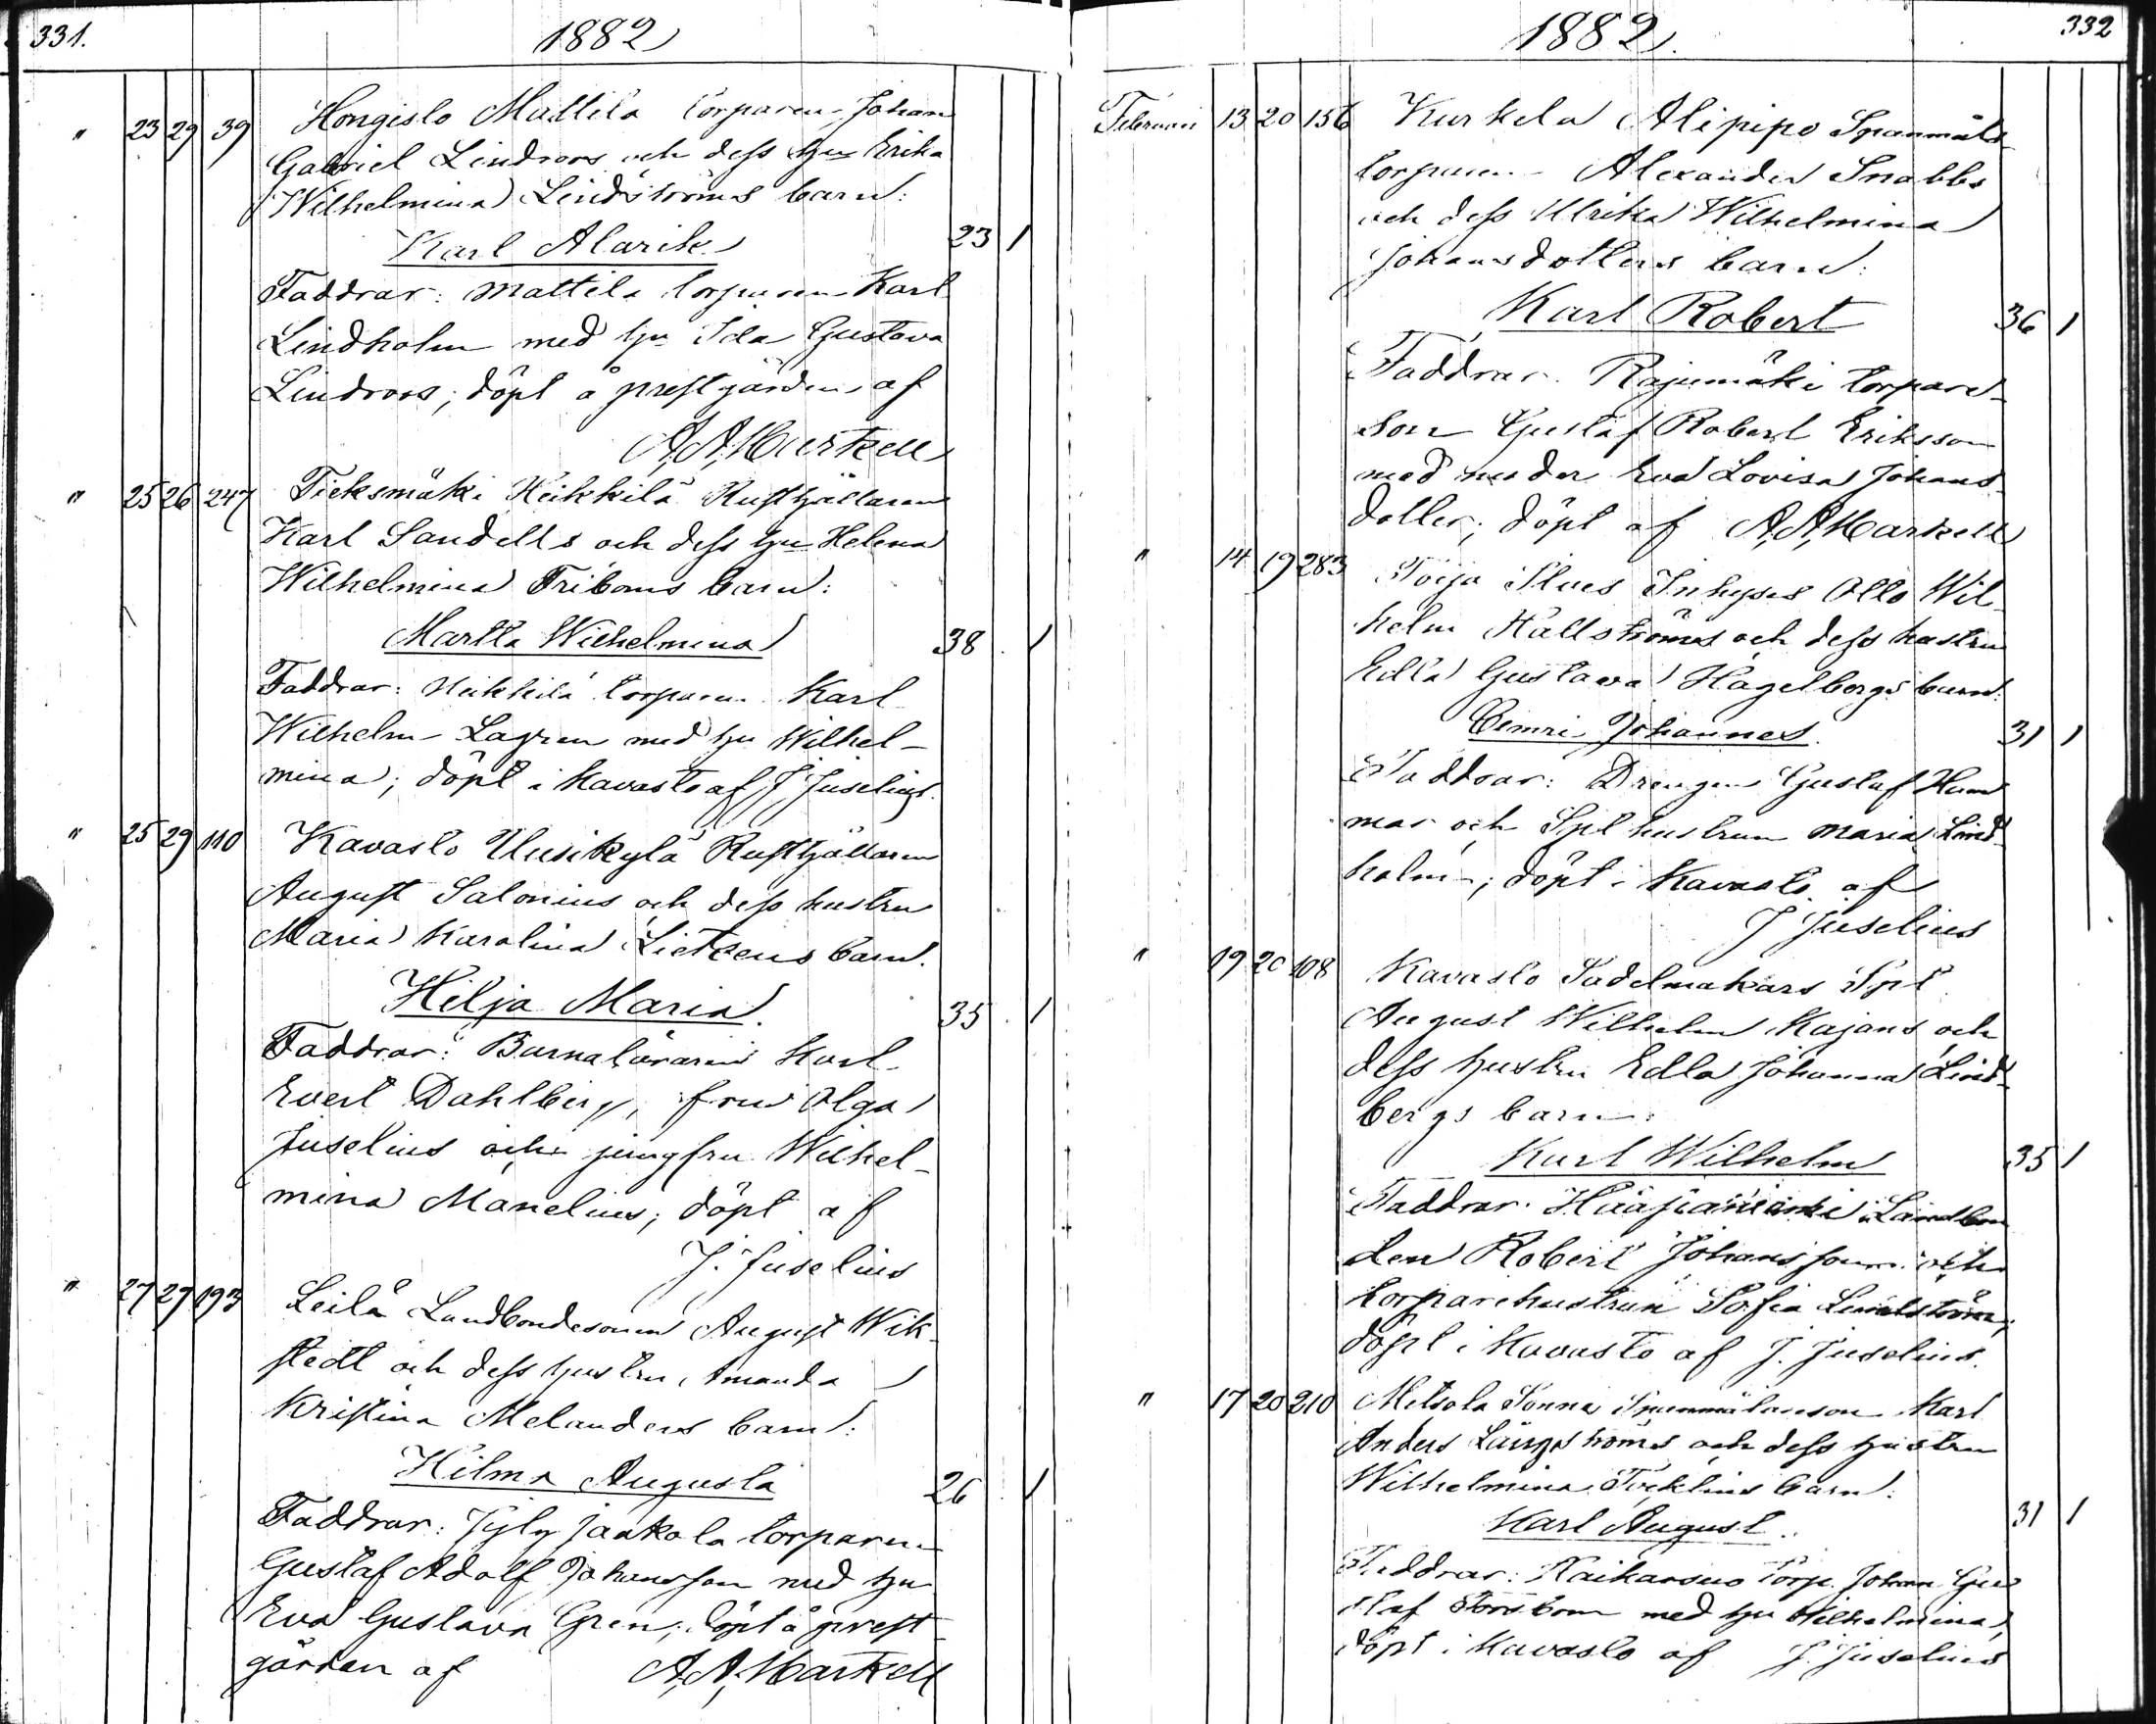 331.
1882
" 23 29 39 Hongislo Mattila torparen Johan
Gabriel Lindroos och dess hu Erika
Wilhelmina Lindströms barn:
Karl Alarik 23 1
Faddrar: Mattila torparen Karl
Lindholm med hu Ida Gustava
Lindroos; döpt å prestgården af
A,A, Markell
" 25 26 247 Tieksmäki Heikkilä Rusthållaren
Karl Sandells och dess hu Helena
Wilhelmina Friboms barn:
Martta Wilhelmina 38 1
Faddrar: Heikkilä torparen Karl
Wilhelm Lagren med hu Wilhel-
mina; döpt i Kavasto af J Juselius.
" 25 29 110 Kavasto Uusikylä Rusthållaren
August Salonius och dess hustru
Maria Karolina Lietzens barn.
Hilja Maria 35 1
Faddrar: Barnaläraren Karl
Evert Dahlberg, fru Olga
Juselius och jungfru Wilhel-
mina Manelius; döpt af
J. Juselius
" 27 29 193 Leilä Landbondesonen August Wik-
stedt och dess hustru Amanda
Kristina Melanders barn:
Hilma Augusta 26 1
Faddrar: Jyly Jaakola torparen
Gustaf Adolf Johansson med hu
Eva Gustava Gren; döpt å prest-
gården af A,A, Markell
1882.
332
Februari 13 20 156 Kurkela Alipipo Spanmåls-
torparen Alexander Snabbs
och dess Ulrika Wilhelmina
Johansdotters barn:
Karl Robert 36 1
Faddrar. Rajumäki torpare-
son Gustaf Robert Eriksson
med moder Eva Lovisa Johans-
dotter; döpt af A,A, Markell
" 14 19 283 Töija Inhyses Otto Wil-
helm Hällströms och dess hustru
Edla Gustava Hagelbergs barn:
Johannes. 31 1
Faddrar: Drengen Gustaf Ham
mar och Spl hustrun Maria Lind-
holm; döpt i Kavasto af
J Juselius
" 19 20 108 Kavasto Sadelmakars Spl
August Wilhelm Kajans och
dess hustru Edla Johanna Lind-
bergs barn:
Karl Wilhelm 35 1
Faddrar: Landbon
den Robert Johansson och
torparehustrun Sofia Lindström;
döpt i Kavasto af J. Juselius.
" 17 20 210 Metsola Sonna Spanmålareson Karl
Anders Långströms och dess hustru
Wilhelmina barn:
Karl August. 31 1
Faddrar: Raikansuo Torp. Johan Gu
staf med hu Wilhelmina,
döpt i Kavasto af J. Juselius